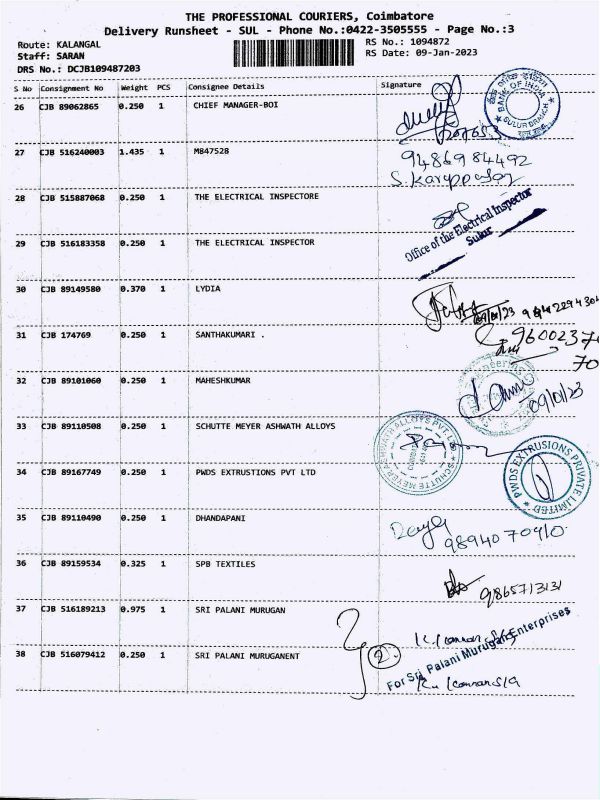 THE PROFESSIONAL COURIERS, Coimbatore
Delivery Runsheet - SUL - Phone No.:0422-3505555 - Page No.:3
Route: KALANGAL
RS No.: 1094872
Staff: SARAN
RS Date: 09-Jan-2023
DRS No.: DCJB109487203
S No Consignment No Weight PCS Consignee Details Signature
26 CJB 89062865 0.250 1 CHIEF MANAGER-BOI
BANK OF INDIA
SULUR BRANCH
27 CJB 516240003 1.435 1 M847528 9486984492
S. Karuppasamy
28 CJB 515887068 0.250 1 THE ELECTRICAL INSPECTORE
Office of the Electrical Inspector
Sulur
29 CJB 516183358 0.250 1 THE ELECTRICAL INSPECTOR
30 CJB 89149580 0.370 1 LYDIA
09/01/23
31 CJB 174769 0.250 1 SANTHAKUMARI .
9600237
70
32 CJB 89101060 0.250 1 MAHESHKUMAR
09/01/23
33 CJB 89110508 0.250 1 SCHUTTE MEYER ASHWATH ALLOYS
SCHUTTE MEYER ASHWATH ALLOYS PVT. LTD.
34 CJB 89167749 0.250 1 PWDS EXTRUSTIONS PVT LTD
PWDS EXTRUSIONS PRIVATE LIMITED
35 CJB 89110490 0.250 1 DHANDAPANI
9894070410
36 CJB 89159534 0.325 1 SPB TEXTILES
9865713131
37 CJB 516189213 0.975 1 SRI PALANI MURUGAN
38 CJB 516079412 0.250 1 SRI PALANI MURUGANENT
2
For Sri Palani Murugan Enterprises